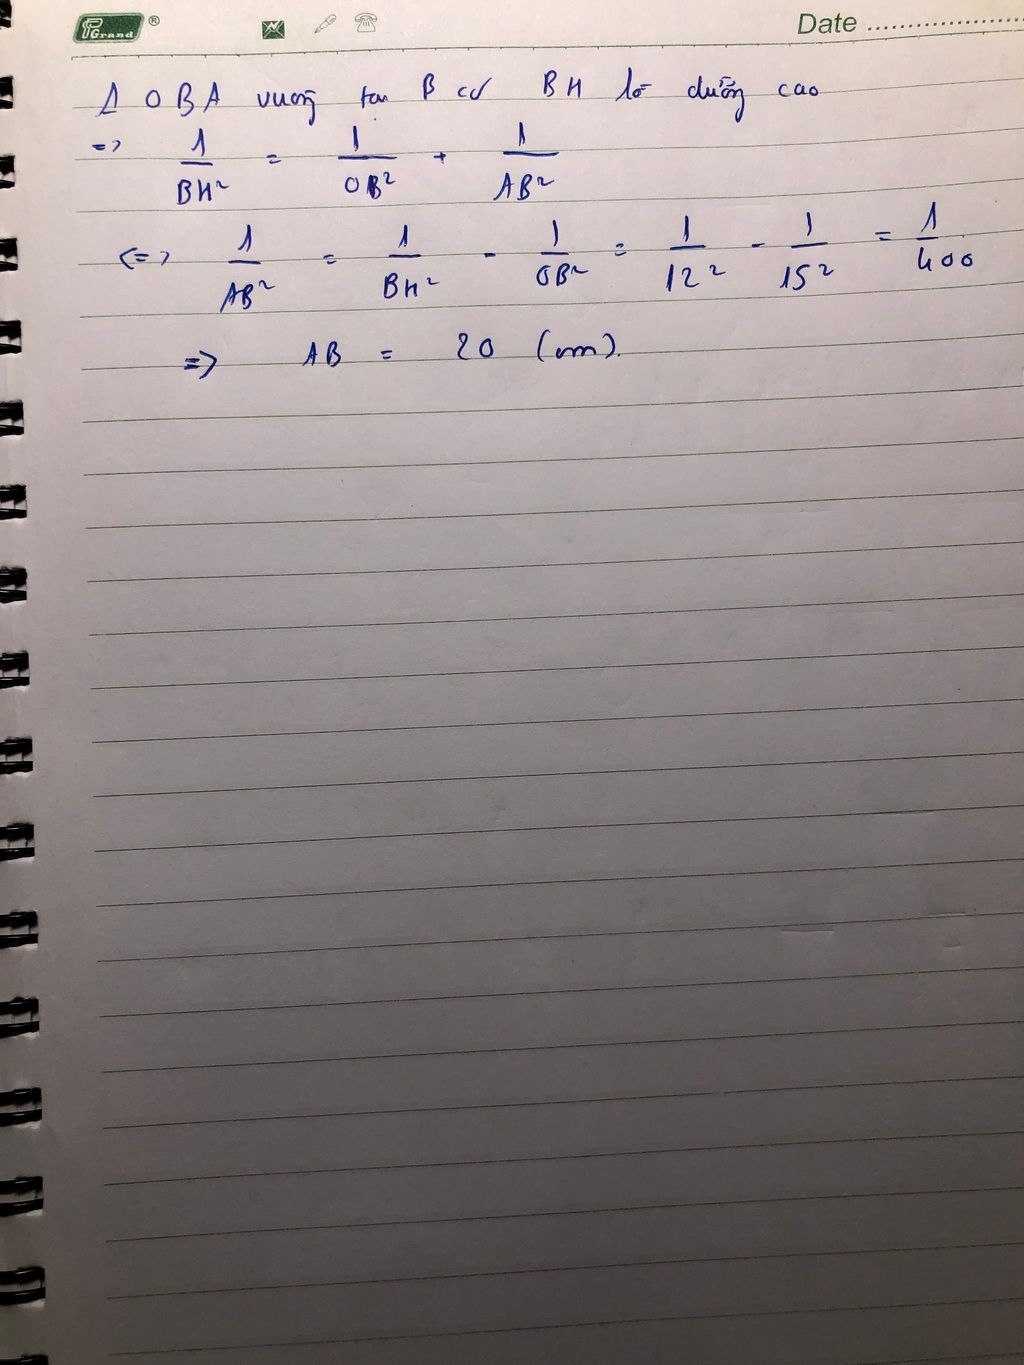 PGrand ® Date
Δ OBA vuông tại B có BH là đường cao
=> 1/BH² = 1/OB² + 1/AB²
<=> 1/AB² = 1/BH² - 1/OB² = 1/12² - 1/15² = 1/400
=> AB = 20 (cm).